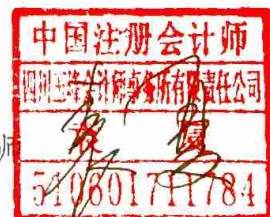 中国注册会计师
四川 计师事务所有限责任公司
师
510601711784